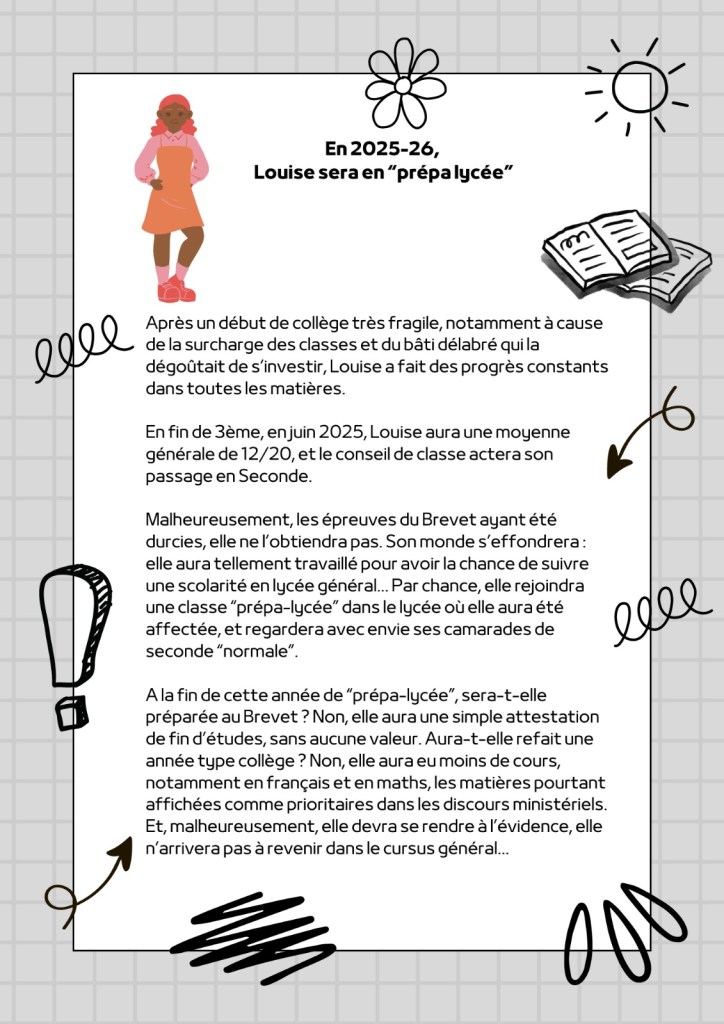 En 2025-26,
Louise sera en “prépa lycée”
Après un début de collège très fragile, notamment à cause
de la surcharge des classes et du bâti délabré qui la
dégoûtait de s’investir, Louise a fait des progrès constants
dans toutes les matières.
En fin de 3ème, en juin 2025, Louise aura une moyenne
générale de 12/20, et le conseil de classe actera son
passage en Seconde.
Malheureusement, les épreuves du Brevet ayant été
durcies, elle ne l’obtiendra pas. Son monde s’effondrera :
elle aura tellement travaillé pour avoir la chance de suivre
une scolarité en lycée général... Par chance, elle rejoindra
une classe “prépa-lycée” dans le lycée où elle aura été
affectée, et regardera avec envie ses camarades de
seconde “normale”.
A la fin de cette année de “prépa-lycée”, sera-t-elle
préparée au Brevet ? Non, elle aura une simple attestation
de fin d’études, sans aucune valeur. Aura-t-elle refait une
année type collège ? Non, elle aura eu moins de cours,
notamment en français et en maths, les matières pourtant
affichées comme prioritaires dans les discours ministériels.
Et, malheureusement, elle devra se rendre à l’évidence, elle
n’arrivera pas à revenir dans le cursus général...